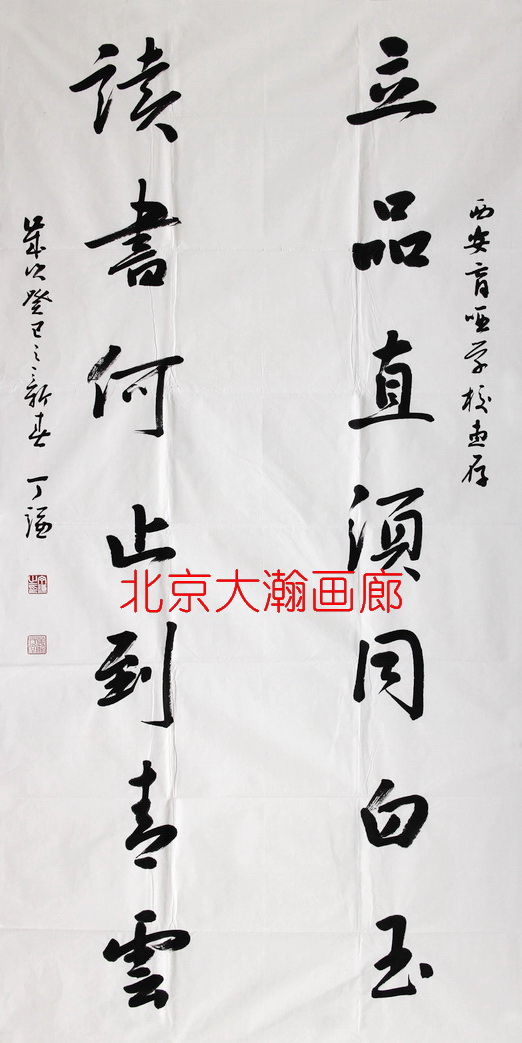 西安盲哑学校惠存
立品直须同白玉
讀書何止到青雲
歲次癸巳之新春 丁谦
北京大瀚画廊